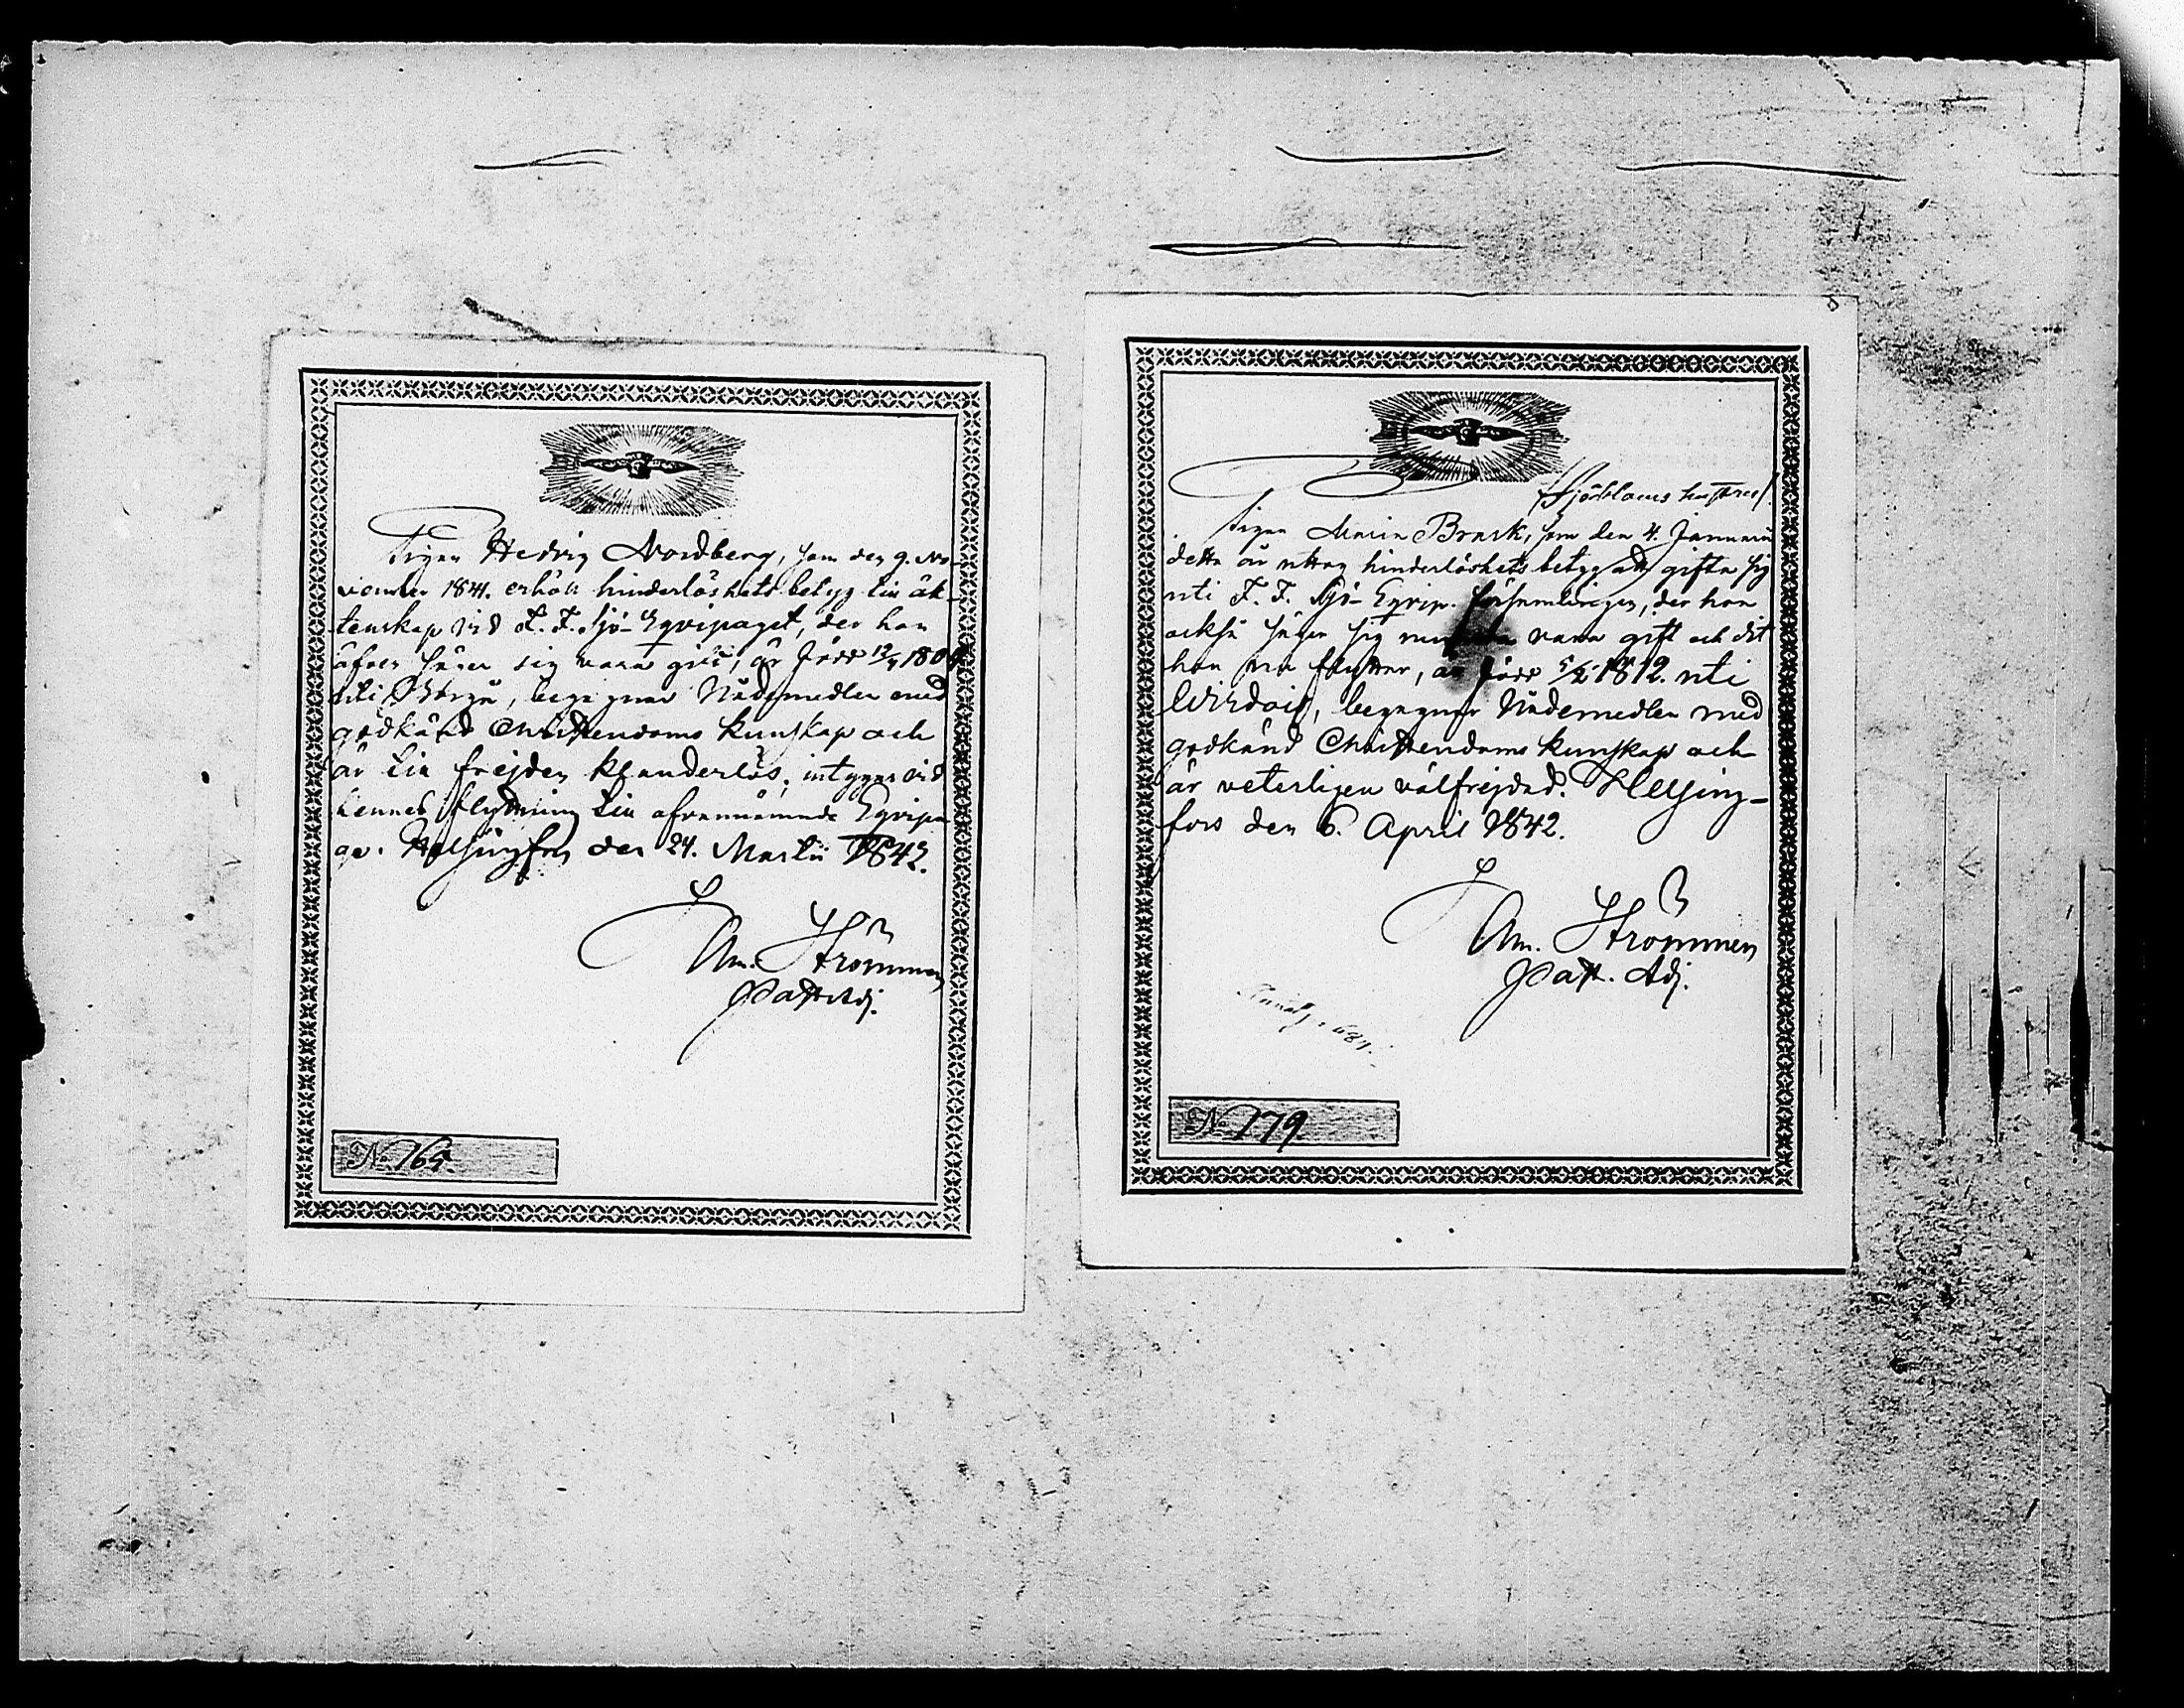 Pigan Hedvig Nordberg, som den 9. No-
vember 1841. erhöll hinderlöshets betyg till äk-
tenskap vid F. F. Sjö-Eqvipaget, der hon
äfven säger sig vara gift, är född 12/4 180
uti Borgå, begagnar Nådemedlen med
godkänd Christendoms kunskap och
är till frejden klanderlös; intygas vid
hennes flyttning till ofvannämnde Eqvipa
ge. Helsingfors den 24. Martii 1842.
Am. Strömmen
Past. Adj.
No 165.
Sjöbloms hustru
Pigan Maria Brask, som den 4. Januarii
detta år uttog hinderlöshets betyg att gifta sig
uti F. F. Sjö-Eqvip. församlingen, der hon
också säger sig vara gift och dit
hon nu flyttar, är född 5/2 1812. uti
Wirdois, begagnar Nådemedlen med
godkänd Christendoms kunskap och
är veterligen välfrejdad. Helsing-
fors den 6. April 1842.
Am. Strömmen
Past. Adj.
No 179